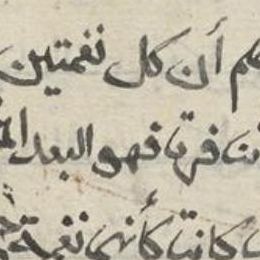 أن كل نغمتين
فرق فهو البعد
كانتا كأنهما نغمة